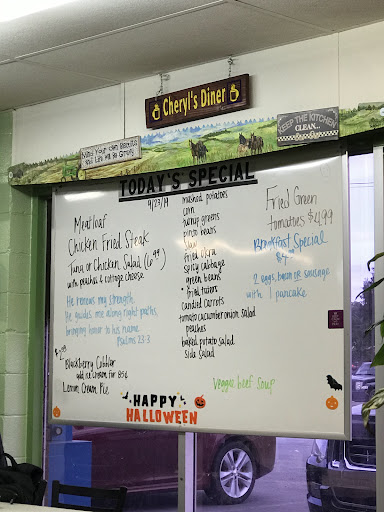 Cheryl's Diner
Mind Your own Biscuits
and Life will Be Gravy
KEEP THE KITCHEN
CLEAN...
TODAY'S SPECIAL
9/23/19
Meatloaf
Chicken Fried Steak
Tuna or Chicken Salad (6.99)
with peaches & cottage cheese
He renews my strength.
He guides me along right paths,
bringing honor to his name.
Psalms 23:3
Blackberry Cobbler
add ice cream for 85¢
Lemon Cream Pie
mashed potatoes
corn
turnip greens
pinto beans
slaw
fried okra
spicy cabbage
green beans
fried taters
candied carrots
tomato cucumber onion salad
peaches
baked potato salad
side salad
Fried Green
tomatoes $4.99
Breakfast Special
2 eggs, bacon or sausage
with 1 pancake
Veggie beef soup
HAPPY
HALLOWEEN